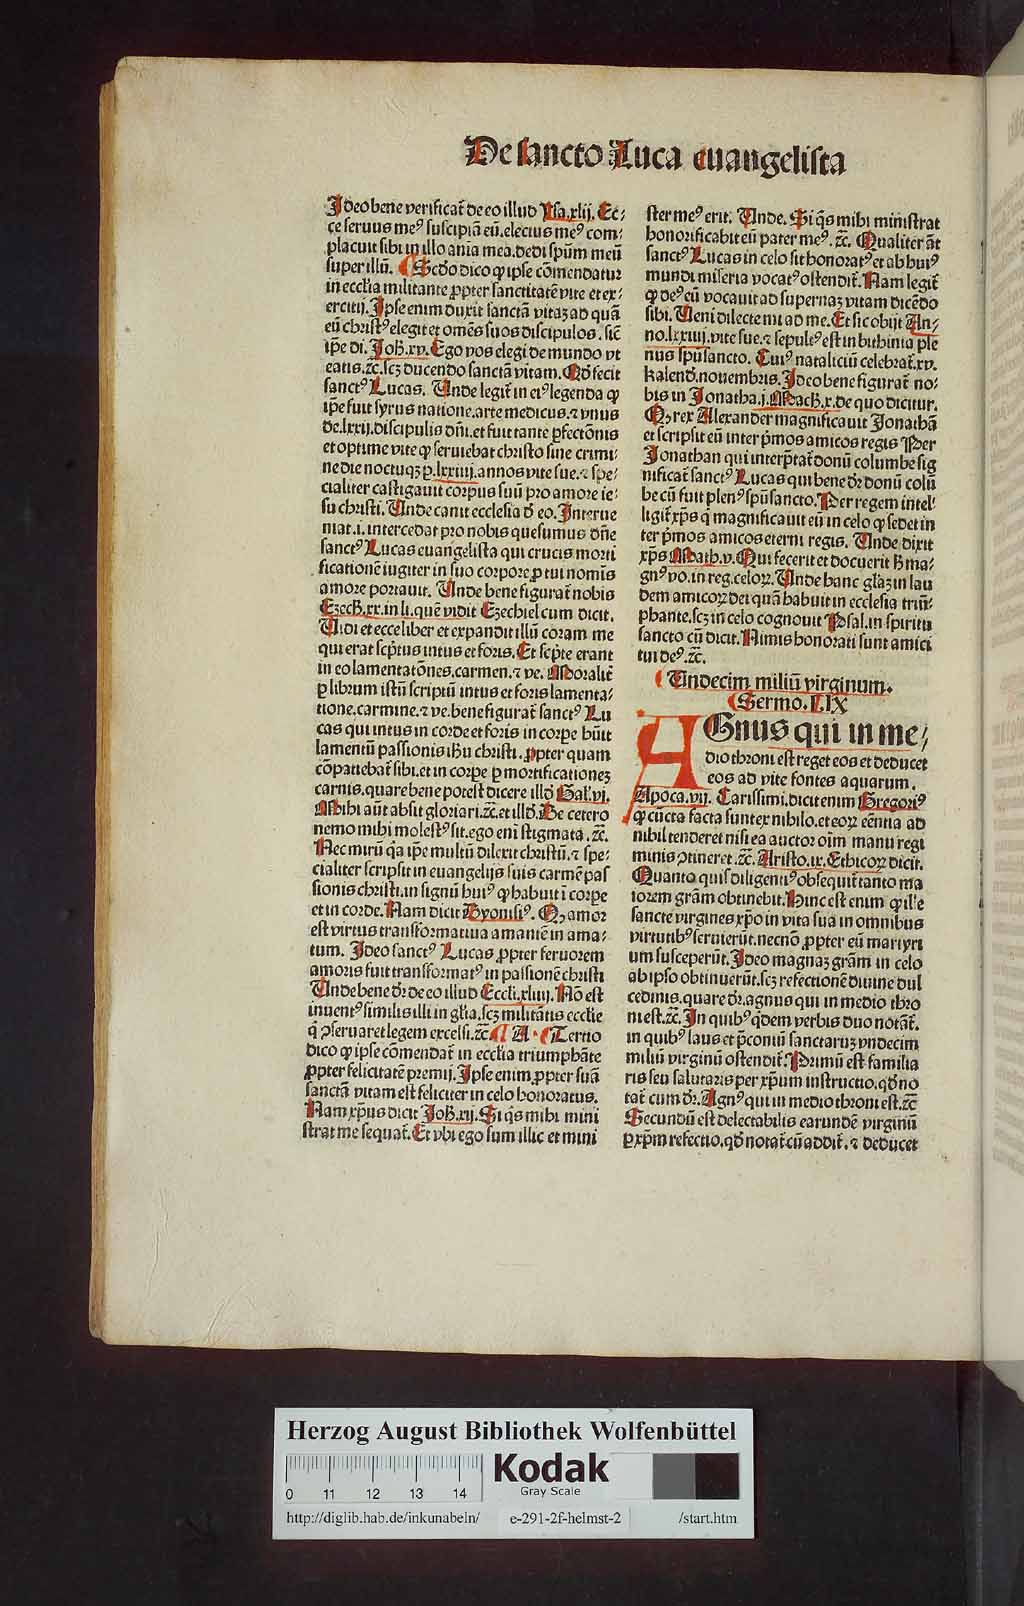 De sancto Luca euangelista
Ideo bene verificat̄ de eo illud Ysa.xlij. Ec⸗
ce seruus meꝰ suscipiā eū.electus meꝰ com⸗
placuit sibi in illo anīa mea.dedi spūm meū
super illū. Scd̄o dico ꝙ ipse cōmendatur
in ecclīa militante ꝓpter sanctitatē vite et ex⸗
ercitij. Ipse enim duxit sanctā vitaꝫ ad quā
eū christꝰ elegit et omēs suos discipulos. sic̄
ip̄e di. Joh̄.xv. Ego vos elegi de mundo vt
eatis.ꝛc̄.scꝫ ducendo sanctā vitam. Qd̄ fecit
sanctꝰ Lucas. Unde legit̄ in eiꝰ legenda ꝙ
ip̄e fuit syrus natione.arte medicus.⁊ vnus
de.lxxij.discipulis dn̄i.et fuit tante ꝑfectōnis
et optime vite ꝙ seruiebat christo sine crimi⸗
ne die noctuqꝫ ꝑ.lxxiiij.annos vite sue.⁊ spe⸗
cialiter castigauit corpus suū pro amore ie⸗
su christi. Unde canit ecclesia d̄ eo. Interue
niat.i.intercedat pro nobis quesumus dn̄e
sanctꝰ Lucas euangelista qui crucis morti
ficationē iugiter in suo corpore ꝓ tui nomīs
amore portauit. Unde bene figurat̄ nobis
Ezech̄.xx.in li.quē vidit Ezechiel cum dicit.
Uidi et ecce liber et expandit illū coram me
qui erat scp̄tus intus et foris. Et scp̄te erant
in eo lamentatōnes.carmen.⁊ ve. Moralit̄
ꝑ librum istū scriptū intus et foris lamenta⸗
tione.carmine.⁊ ve.bene figurat̄ sanctꝰ Lu
cas qui intus in corde et foris in corpe h̄uit
lamentū passionis ih̄u christi. ꝓpter quam
cōpatiebat̄ sibi.et in corpe ꝑ mortificationeꝫ
carnis.quare bene potest dicere illd̄ Gal̄.vi.
Mihi aūt absit gloriari.ꝛc̄.et illd̄. De cetero
nemo mihi molestꝰ sit.ego eni stigmata.ꝛc̄.
Nec mirū q̄a ip̄e multū dilexit christū.⁊ spe⸗
cialiter scripsit in euangelijs suis carmē pas
sionis christi.in signū huiꝰ ꝙ habuit ī corpe
et in corde. Nam dicit Dyonisiꝰ. Qꝫ amor
est virtus transformatiua amantē in ama⸗
tum. Ideo sanctꝰ Lucas ꝓpter feruorem
amoris fuit transformatꝰ in passionē christi
Unde bene dr̄ de eo illud Eccli.xliiij. Nō est
inuentꝰ similis illi in gl̄ia.scꝫ militātis ecclīe
q̄ ꝯseruaret legem excelsi.ꝛc̄ A Tertio
dico ꝙ ipse cōmendat̄ in ecclīa triumphāte
ꝓpter felicitatē premij. Ipse enim ꝓpter suā
sanctā vitam est feliciter in celo honoratus.
Nam xp̄us dicit Joh̄.xij. Si q̄s mihi mini
strat me sequat̄. Et vbi ego sum illic et mini
ster meꝰ erit. Unde. Si q̄s mihi ministrat
honorificabit eū pater meꝰ.ꝛc̄. Qualiter āt
sanctꝰ Lucas in celo sit honoratꝰ et ab huiꝰ
mundi miseria vocatꝰ ostendit̄. Nam legit̄
ꝙ deꝰ eū vocauit ad supernaꝫ vitam dicēdo
sibi. Ueni dilecte mi ad me. Et sic obijt An⸗
no.lxxiiij.vite sue.⁊ sepultꝰ est in bithinia ple
nus spūsancto. Cuiꝰ nataliciū celebrat̄.xv.
kalend̄.nouembris. Ideo bene figurat̄ no⸗
bis in Jonatha.j.Mach̄.x.de quo dicitur.
Qꝫ rex Alexander magnificauit Jonathā
et scripsit eū inter p̄mos amicos regis Per
Jonathan qui interp̄tat̄ donū columbe sig
nificat̄ sanctꝰ Lucas qui bene dr̄ donū colū
be cū fuit plenꝰ spūsancto. Per regem intel⸗
ligit̄ xp̄s q̄ magnificauit eū in celo ꝙ sedet in
ter p̄mos amicos eterni regis. Unde dixit
xp̄s Math̄.v. Qui fecerit et docuerit h̄ ma⸗
gnꝰ vo.in reg.celoꝝ. Unde hanc gl̄aꝫ in lau
dem amicoꝝ dei quā habuit in ecclesia triū⸗
phante.scꝫ in celo cognouit Psal̄.in spiritu
sancto cū dicit. Nimis honorati sunt amici
tui deꝰ.ꝛc̄.
Undecim miliū virginum.
Sermo.LIX
AGnus qui in me⸗
dio throni est reget eos et deducet
eos ad vite fontes aquarum.
Apoca.vij. Carissimi.dicit enim Gregoriꝰ
ꝙ cūcta facta sunt ex nihilo.et eoꝝ eēntia ad
nihil tenderet nisi ea auctor oīm manu regi
minis ꝯtineret.ꝛc̄. Aristo.ix. Ethicoꝝ dicit.
Quanto quis diligentiꝰ obsequit̄ tanto ma
iorem grām obtinebit. Hinc est enim ꝙ ille
sancte virgines xp̄o in vita sua in omnibus
virtutibꝰ seruierūt.necnō ꝓpter eū martyri
um susceperūt. Ideo magnaꝫ grām in celo
ab ipso obtinuerūt.scꝫ refectionē diuine dul
cedinis.quare dr̄.agnus qui in medio thro
ni est.ꝛc̄. In quibꝰ q̄dem verbis duo notāt̄.
in quibꝰ laus et p̄coniū sanctaruꝫ vndecim
miliū virginū ostendit̄. Primū est familia
ris seu salutaris per xp̄um instructio.qd̄ no
tat̄ cum dr̄. Agnꝰ qui in medio throni est.ꝛc̄
Secundū est delectabilis earundē virginū
ꝑ xp̄m refectio.qd̄ notat̄ cū addit̄.⁊ deducet
Herzog August Bibliothek Wolfenbüttel
0 11 12 13 14
Kodak
Gray Scale
http://diglib.hab.de/inkunabeln/ e-291-2f-helmst-2 /start.htm